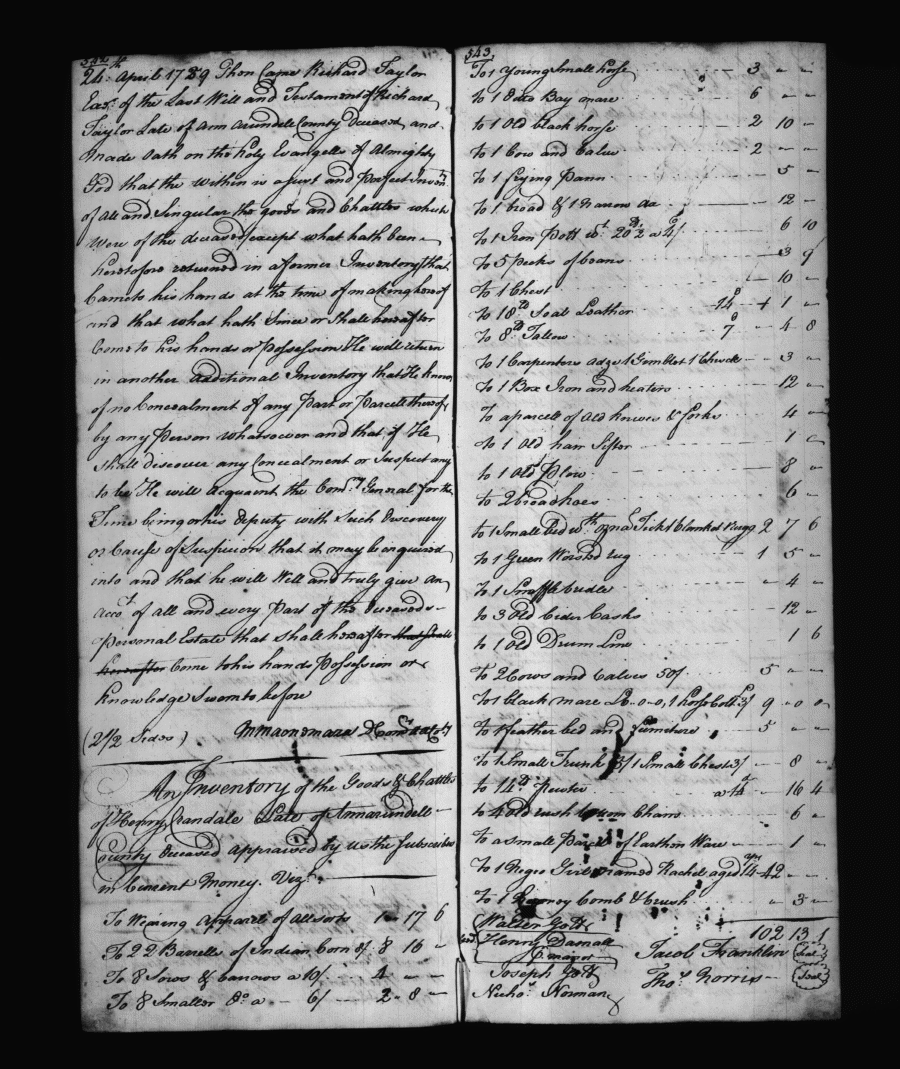 542
24th April 1739 Then Came Richard Taylor
Exer. of the Last Will and Testament of Richard
Taylor Late of Ann Arundell County Deceased and
made Oath on the holy Evangells of Almighty
God that the within is a just and Perfect Inven
of all and Singular the goods and Chattles which
were of the deceased except what hath been
heretofore returned in a former Inventory that
Came to his hands at the time of making hereof
and that what hath Since or Shall hereafter
Come to his hands or Possession He will return
in another additional Inventory that He knows
of no Concealment of any Part or Parcell thereof
by any Person whatsoever and that if He
Shall discover any Concealment or Suspect any
to be He will acquaint the Com.ry Genral for the
Time being or his deputy with Such discovery
or Cause of Suspicion that it may be enquired
into and that he will Well and truly give an
Acco.t of all and every Part of the deceaseds
Personal Estate that Shall hereafter that Shall
hereafter Come to his hands Possession or
Knowledge Sworn to before
(2 1/2 Sides)
An Inventory of the Goods & Chattles
of Henry Crandale Late of Annarundell
County Deceased appraised by us the Subscribers
in Current Money. Viz.t
To Wearing Apparell of all sorts 1 - 17 6
To 22 Barrells of Indian Corn 8/ 8 16 -
To 8 Sows & barrows a 10/. 4 - -
To 8 Smaller Do a - 6/ 2 - 8 -
543
To 1 Young Small horse 3 - -
to 1 Ditto Bay mare 6 - -
to 1 Old black horse 2 10 -
to 1 Cow and Calve 2 - -
to 1 frying Pann 5 -
to 1 broad & 1 narrow ax 12 -
to 1 Iron Pott wt. 20 1/2 lb a 4/ 6 10
To 5 Pecks of beans 3 9
To 1 Chest 10 -
To 18 lb Soal Leather 14d 1 1 -
To 8 lb Tallow 7d 4 8
to 1 Carpenters adze 1 Gimblet 1 3 -
To 1 Box Iron and heaters 12 -
To a parcell of Old knives & forks 4 -
to 1 Old hair Sifter 1 -
to 1 Old Plow 8 -
to 2 broad hoes 6 -
to 1 Small bed wth Tick 1 blanket 1 rugg 2 7 6
to 1 Green Worsted rug 1 5 -
to 1 Snaffle bridle - 4 -
to 3 Old Cider Casks 12 -
to 1 Old Drum Line 1 6
to 2 Cows and Calves 50/. 5 - -
To 1 black mare 1 horse Colt 9 - 0 0
To 1 feather bed and furniture 5 - -
to 1 Small Trunk 5/ 1 Small Chest 3/ - 8 -
to 14 lb Pewter a 14d - 16 4
to 4 Old rush bottom Chairs 6 -
to a small Parcel of Earthen Ware 1 -
To 1 Negro Girl named Rachel aged 14 42 - -
To 1 Comb & brush - 3 -
102 13 1
Walter Gott
Henry Darnall
Joseph Gott
Nicho.s Norman
Jacob Franklin (Seal)
Tho.s Norris (Seal)